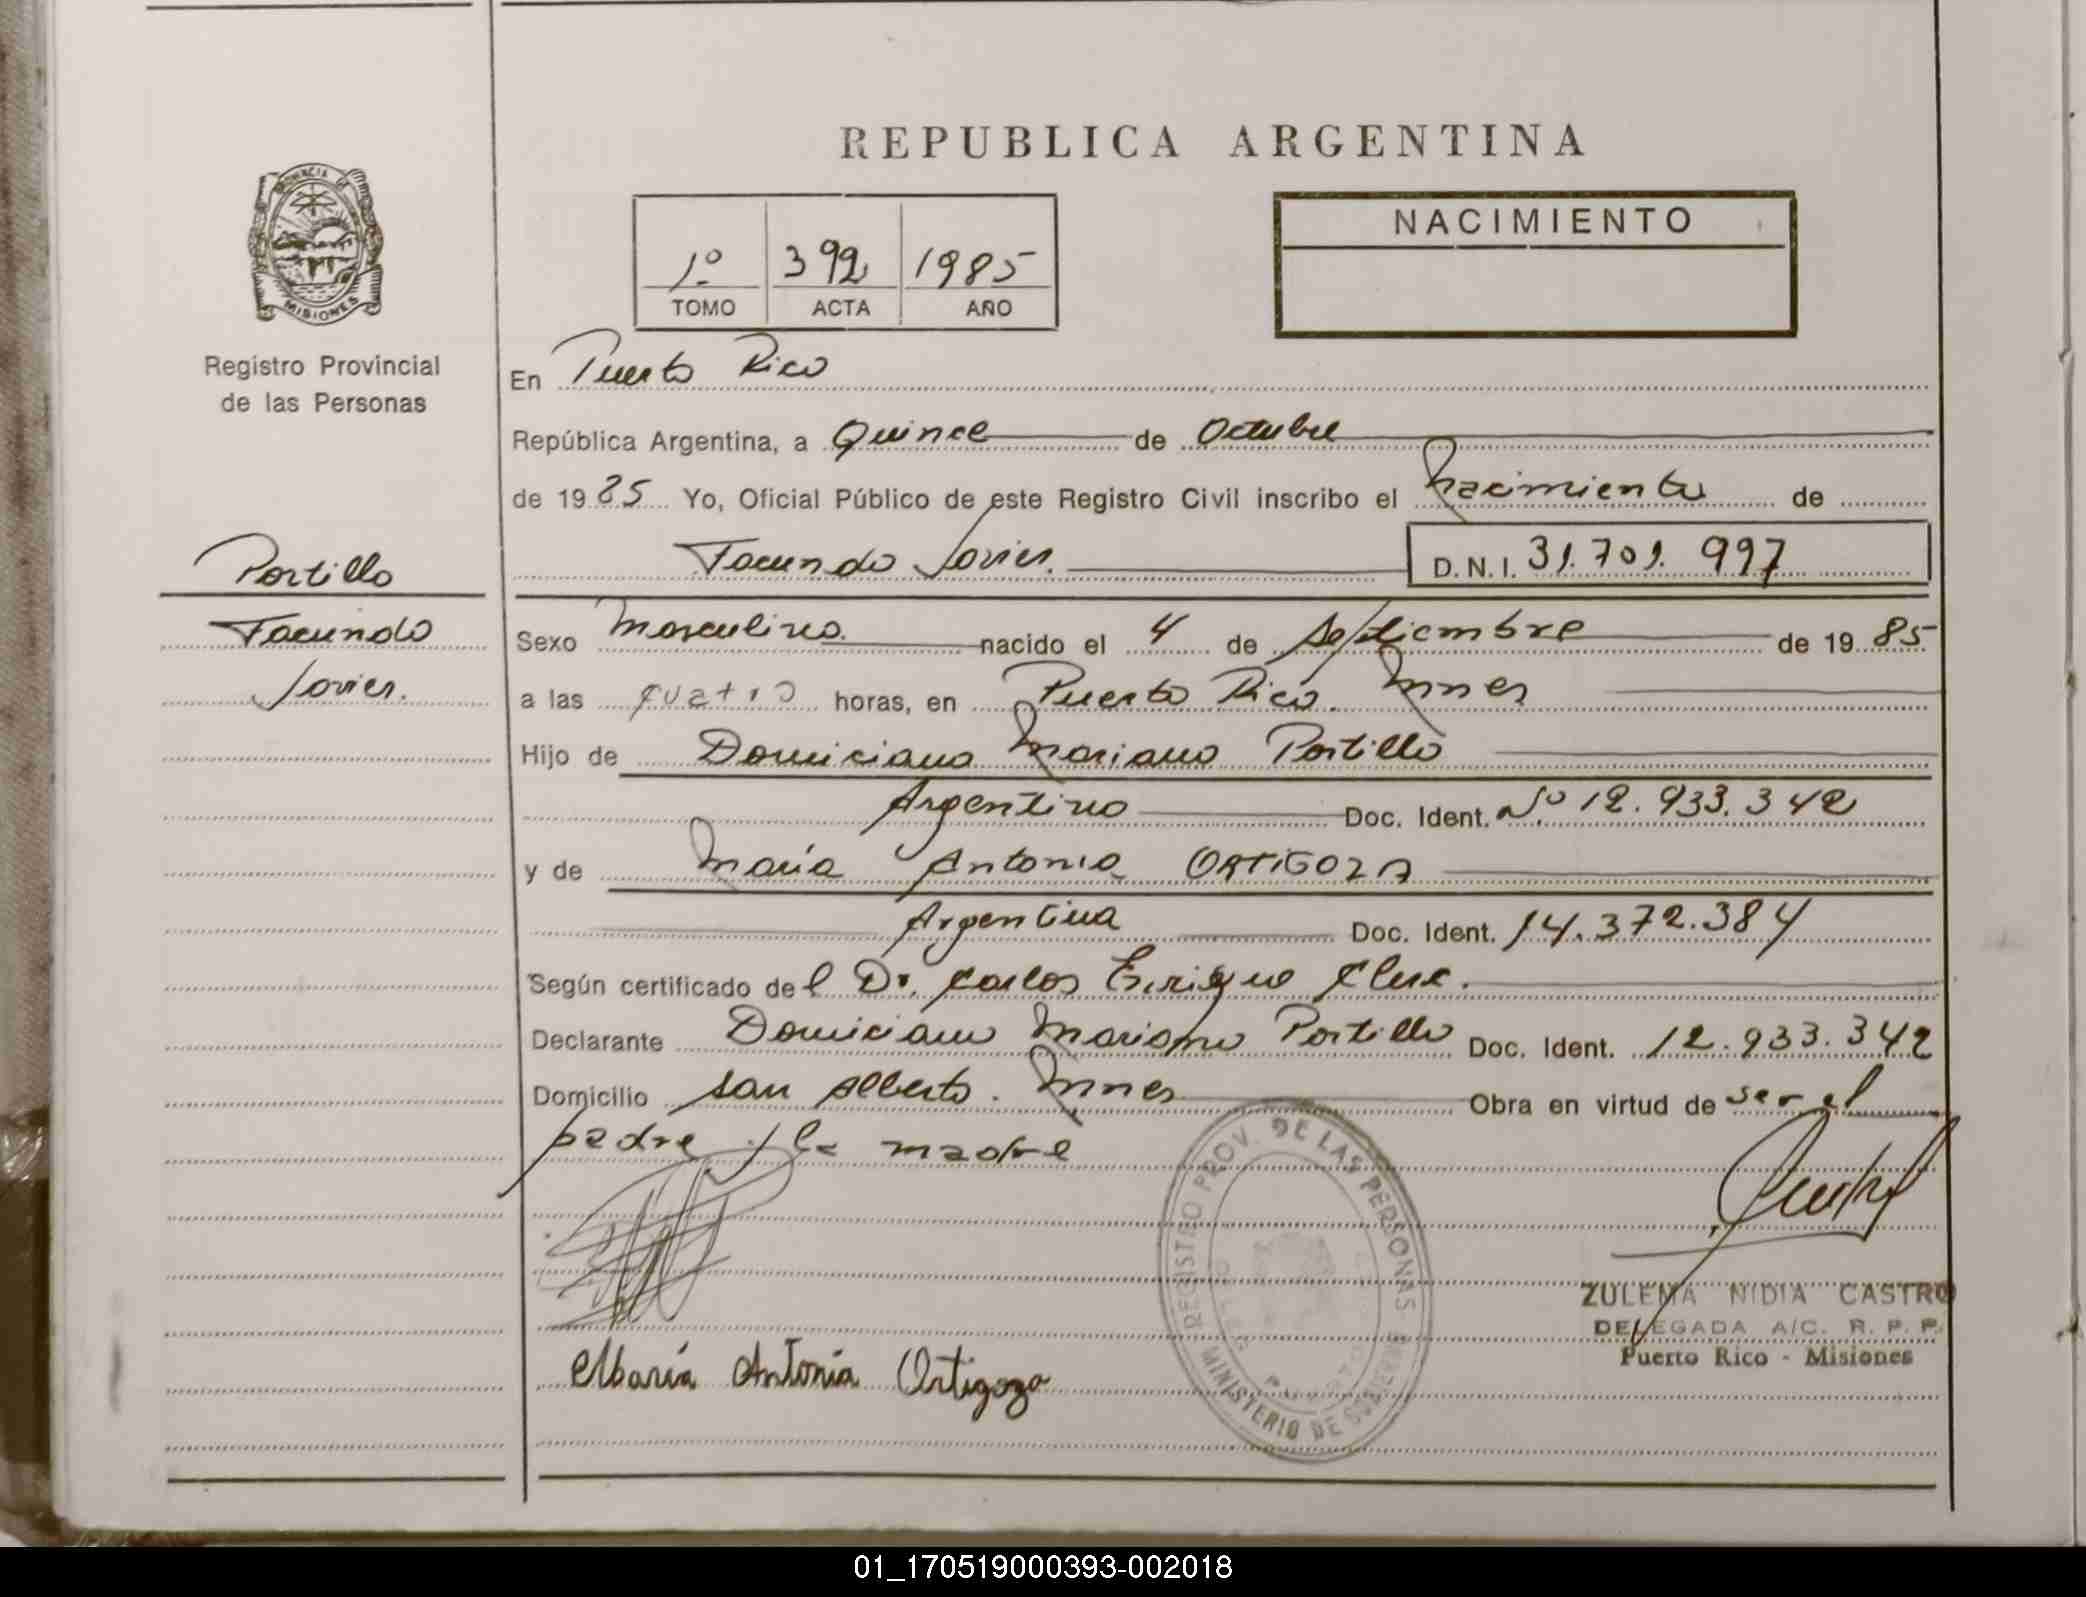 REPUBLICA ARGENTINA
PROVINCIA DE
MISIONES
Registro Provincial
de las Personas
1º 392 1985
TOMO ACTA AÑO
NACIMIENTO
En Puerto Rico
República Argentina, a Quince de Octubre
de 1985 Yo, Oficial Público de este Registro Civil inscribo el Nacimiento de
Facundo Javier. D.N.I. 31.701.997
Portillo
Facundo
Javier.
Sexo Masculino. nacido el 4 de Septiembre de 1985
a las cuatro horas, en Puerto Rico. Mnes
Hijo de Domiciano Mariano Portillo
Argentino Doc. Ident. Nº 12.933.342
y de María Antonia ORTIGOZA
Argentina Doc. Ident. 14.372.384
Según certificado del Dr. Carlos Enrique
Declarante Domiciano Mariano Portillo Doc. Ident. 12.933.342
Domicilio San Alberto. Mnes Obra en virtud de ser el
padre y la madre
María Antonia Ortigoza
REGISTRO PROV. DE LAS PERSONAS
MINISTERIO DE GOBIERNO
ZULEMA NIDIA CASTRO
DELEGADA A/C. R. P. P.
Puerto Rico - Misiones
01_170519000393-002018